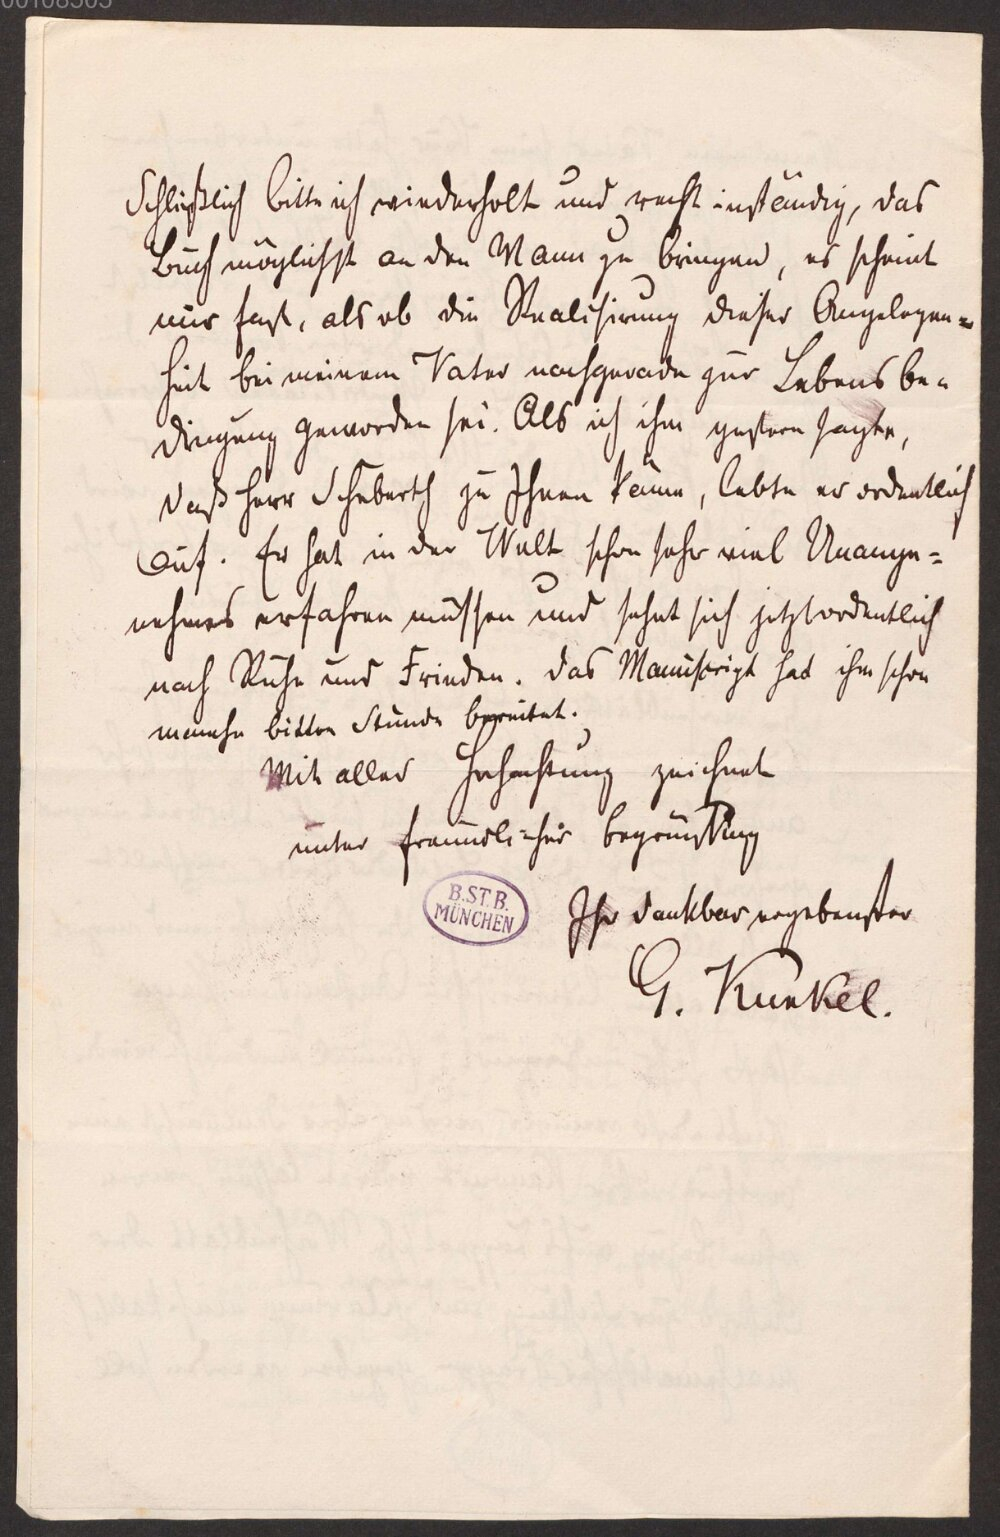 00108503
Schließlich bitte ich wiederholt und recht inständig, das
Buch möglichst an den Mann zu bringen, es scheint
mir fast, als ob die Realisirung dieser Angelegen=
heit bei meinem Vater nachgerade zur Lebensbe-
dingung geworden sei. Als ich ihm gestern sagte,
daß Herr Schuberth zu Ihnen käme, lebte er ordentlich
auf. Er hat in der Welt schon sehr viel Unange=
nehmes erfahren müssen und sehnt sich jetzt ordentlich
nach Ruhe und Frieden. Das Manuscript hat ihm schon
manche bittre Stunde bereitet.
Mit aller Hochachtung zeichnet
unter freundlicher Begrüßung
B.ST.B.
MÜNCHEN
Ihr dankbar ergebenster
G. Kunkel.